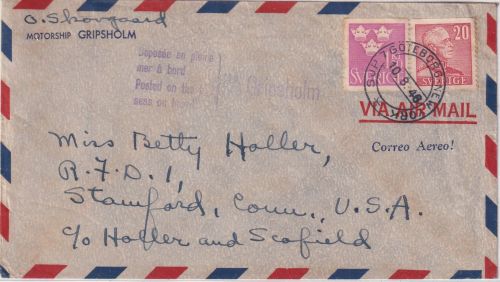 O. Skovgaard
MOTORSHIP GRIPSHOLM
Deposée en pleine
mer à bord
Posted on the
seas on board
Gripsholm
SVERIGE
20
SVERIGE
SJÖP. 7 GÖTEBORG-NEW YORK
10.9.46
VIA AIR MAIL
Correo Aereo!
Miss Betty Holler,
R.F.D. 1,
Stamford, Conn., U.S.A.
c/o Holler and Scofield